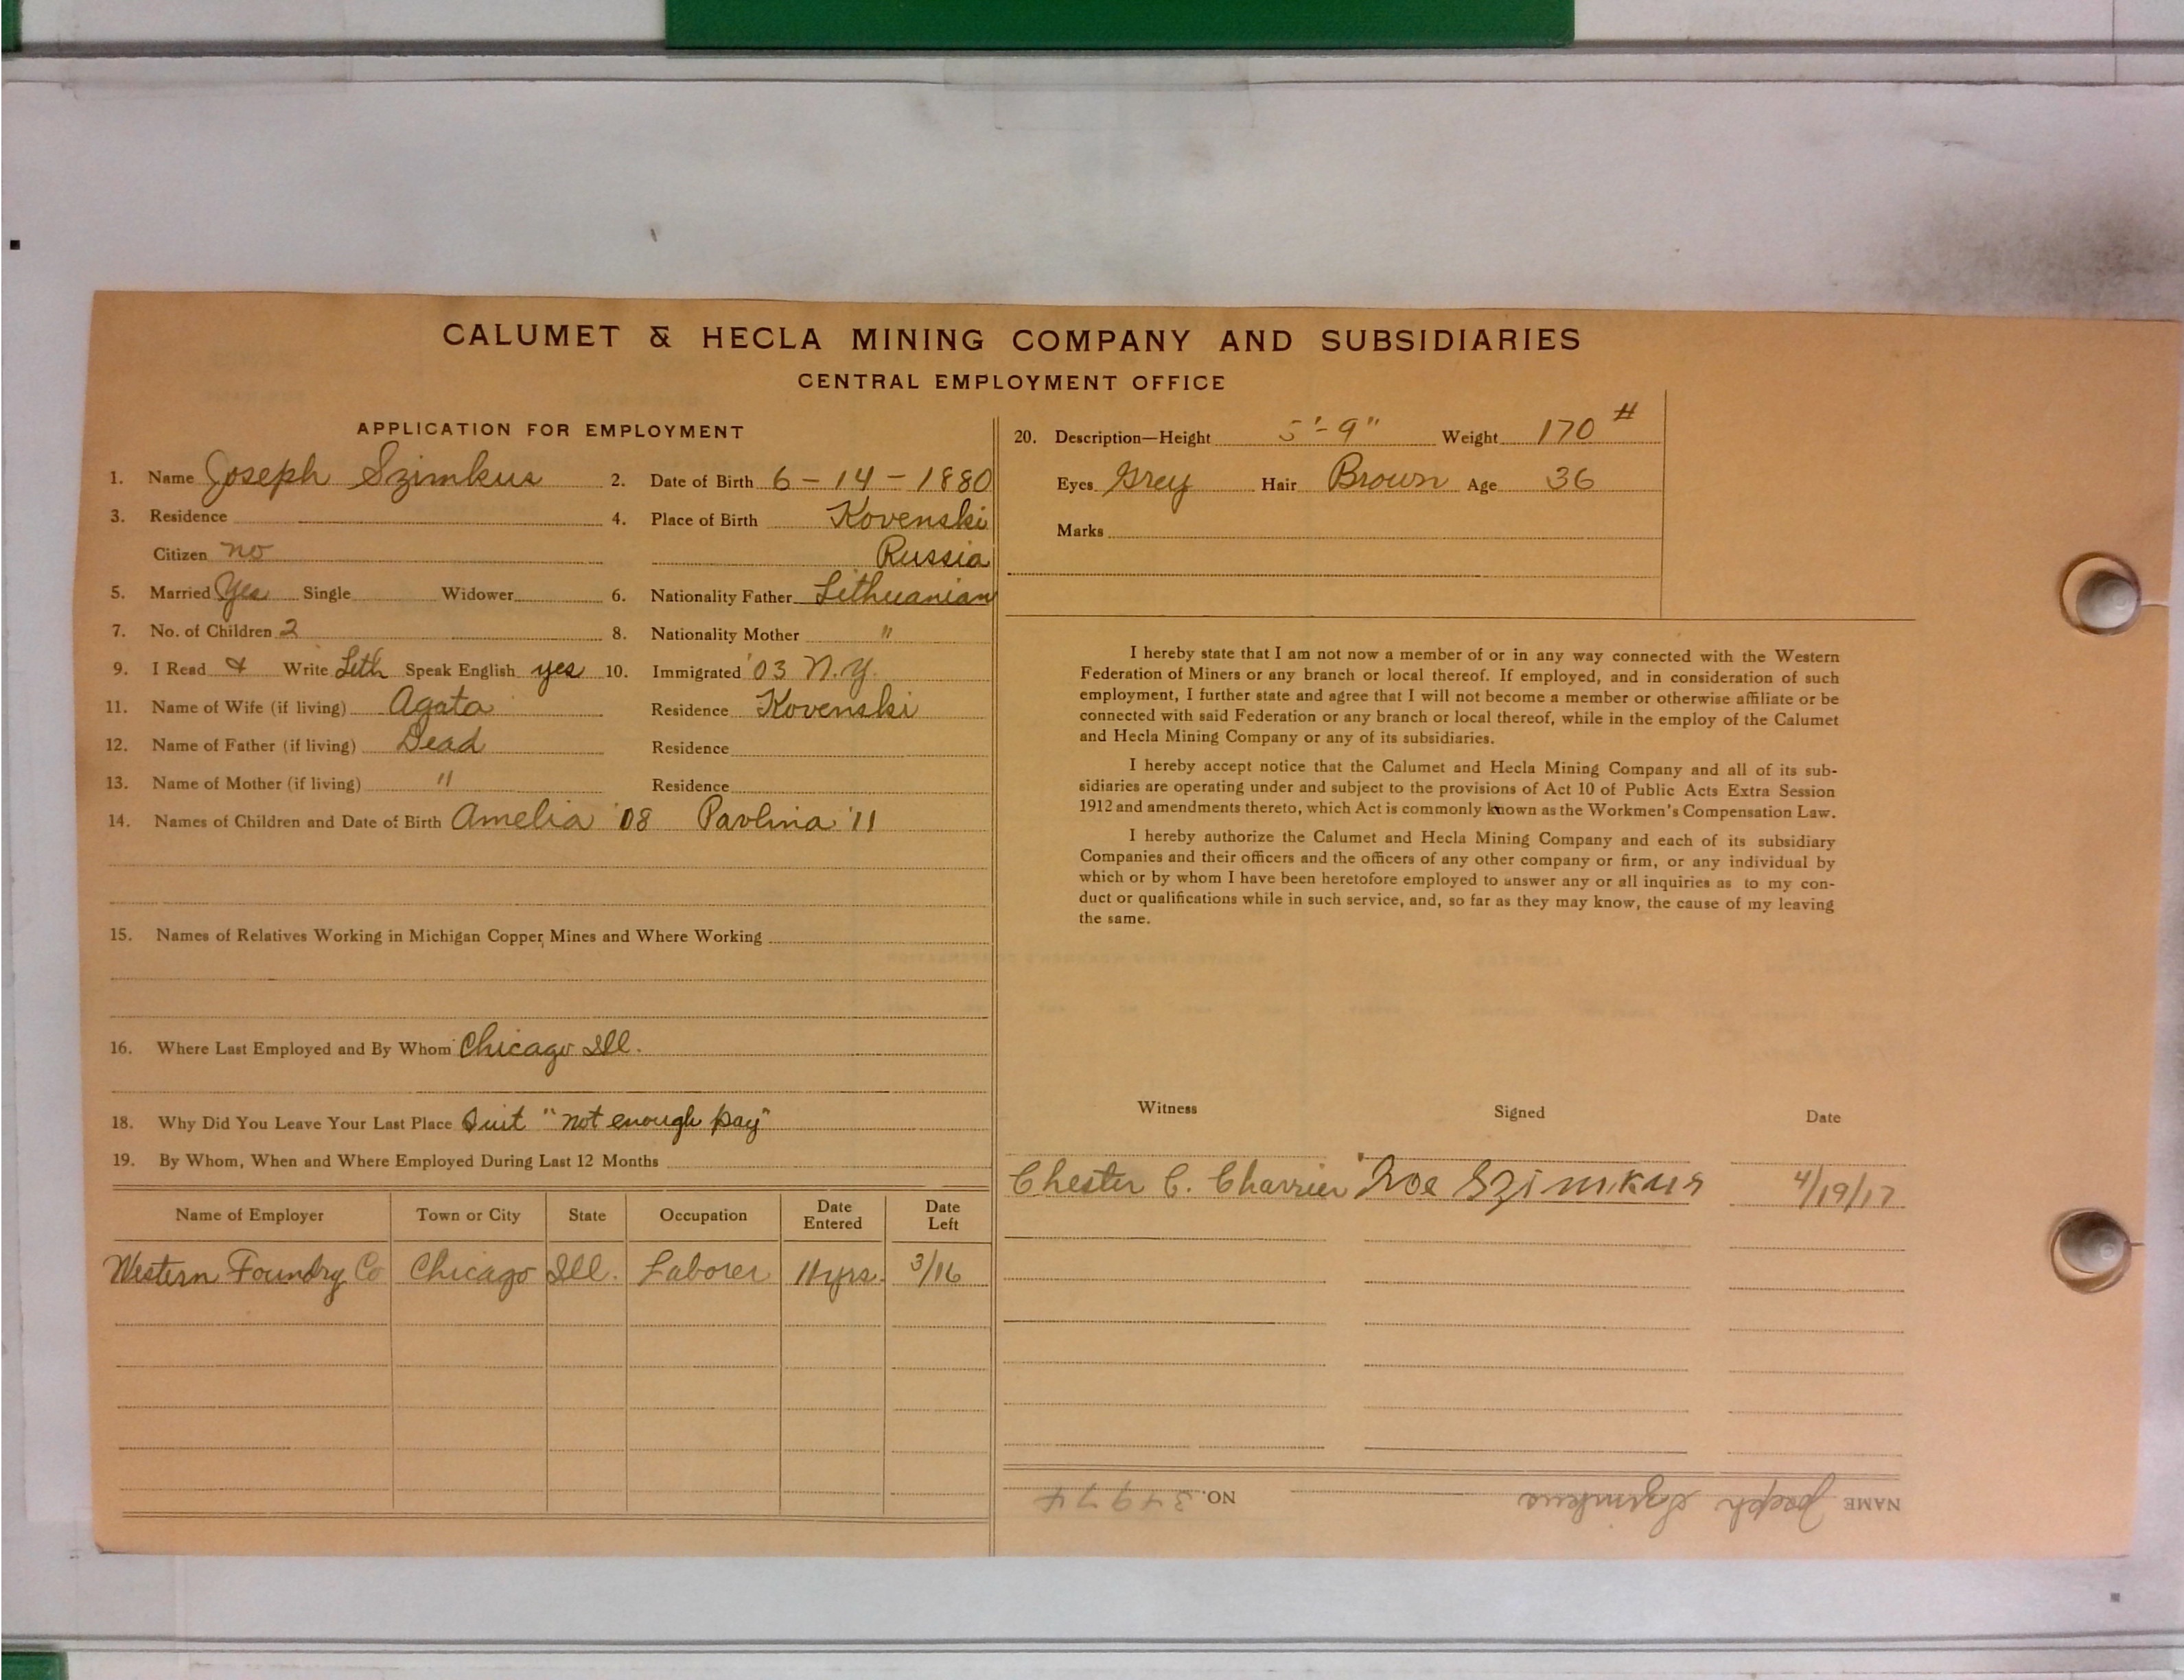 CALUMET & HECLA MINING COMPANY AND SUBSIDIARIES
CENTRAL EMPLOYMENT OFFICE
APPLICATION FOR EMPLOYMENT
1. Name Joseph Szimkus 2. Date of Birth 6 - 14 - 1880
3. Residence 4. Place of Birth Kovenski
Citizen no Russia
5. Married Yes Single Widower 6. Nationality Father Lithuanian
7. No. of Children 2 8. Nationality Mother "
9. I Read & Write Lith Speak English yes 10. Immigrated '03 N.Y.
11. Name of Wife (if living) Agata Residence Kovenski
12. Name of Father (if living) Dead Residence
13. Name of Mother (if living) " Residence
14. Names of Children and Date of Birth Amelia '08 Pavlina '11
15. Names of Relatives Working in Michigan Copper Mines and Where Working
16. Where Last Employed and By Whom Chicago Ill.
18. Why Did You Leave Your Last Place Quit "not enough pay"
19. By Whom, When and Where Employed During Last 12 Months
Name of Employer Town or City State Occupation Date Entered Date Left
Western Foundry Co Chicago Ill. Laborer 11 yrs. 3/16
20. Description—Height 5'-9" Weight 170 #
Eyes Grey Hair Brown Age 36
Marks
I hereby state that I am not now a member of or in any way connected with the Western
Federation of Miners or any branch or local thereof. If employed, and in consideration of such
employment, I further state and agree that I will not become a member or otherwise affiliate or be
connected with said Federation or any branch or local thereof, while in the employ of the Calumet
and Hecla Mining Company or any of its subsidiaries.
I hereby accept notice that the Calumet and Hecla Mining Company and all of its sub-
sidiaries are operating under and subject to the provisions of Act 10 of Public Acts Extra Session
1912 and amendments thereto, which Act is commonly known as the Workmen's Compensation Law.
I hereby authorize the Calumet and Hecla Mining Company and each of its subsidiary
Companies and their officers and the officers of any other company or firm, or any individual by
which or by whom I have been heretofore employed to answer any or all inquiries as to my con-
duct or qualifications while in such service, and, so far as they may know, the cause of my leaving
the same.
Witness Signed Date
Chester C. Charrier Joe Szimkus 4/19/17
NAME Joseph Szimkus NO. 34974